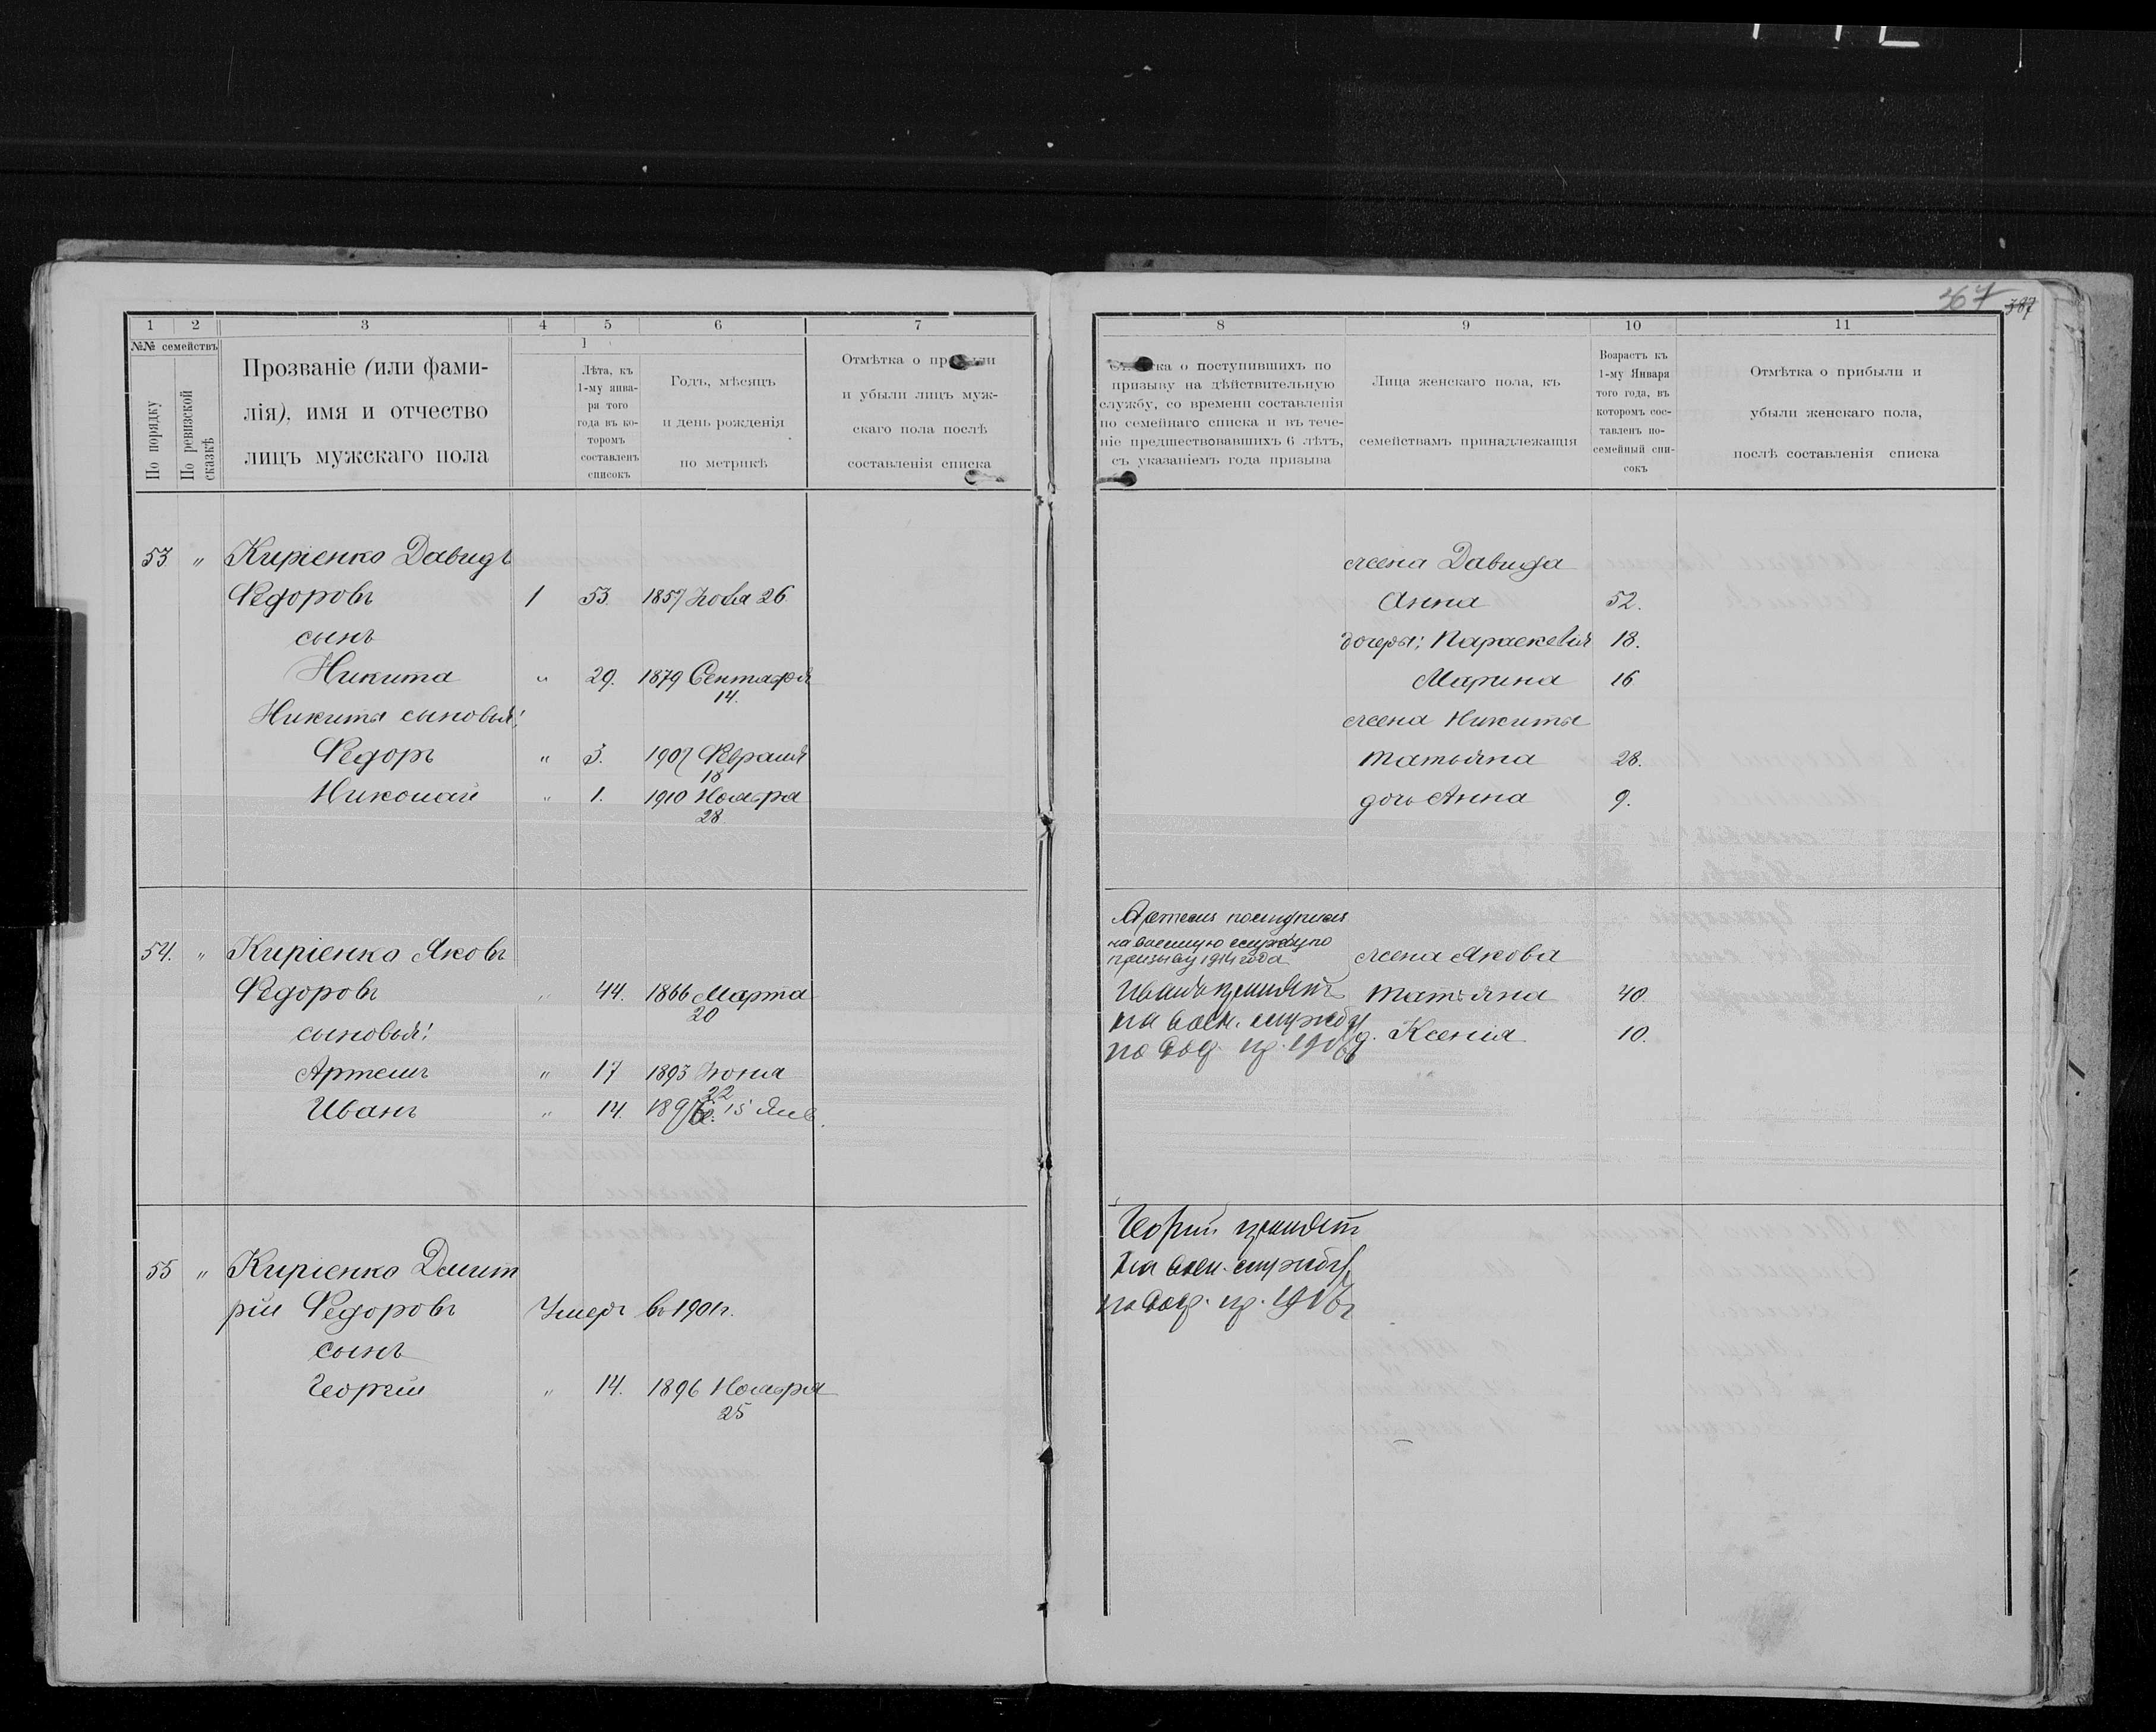 367 387
1 2 3 4 5 6 7
№№ семействъ
По порядку
По ревизской сказкѣ
Прозваніе (или фами-
лія), имя и отчество
лицъ мужскаго пола
Лѣта, къ
1-му янва-
ря того
года въ ко-
торомъ
составленъ
списокъ
Годъ, мѣсяцъ
и день рожденія
по метрикѣ
Отмѣтка о
и убыли лицъ муж-
скаго пола послѣ
составленія списка
53 " Киріенко Давидъ
Федоровъ 1 53 1857 26
сынъ
Никита " 29. 1879 Сентября
14.
Никиты сыновья:
Федоръ " 3. 1907 Февраля
18
Николай " 1. 1910 Ноября
28
54. " Киріенко Яковъ
Федоровъ " 44. 1866 Марта
20
сыновья:
Артемъ " 17 1893 Іюня
22
Иванъ " 14. 1896. 15 Янв.
55 " Киріенко Дмит
рій Федоровъ Умеръ въ 1901 г.
сынъ
Георгій " 14. 1896 Ноября
25
8 9 10 11
о поступившихъ по
призыву на дѣйствительную
службу, со времени составленія
по семейнаго списка и въ тече-
ніе предшествовавшихъ 6 лѣтъ,
съ указаніемъ года призыва
Лица женскаго пола, къ
семействамъ принадлежащія
Возрастъ къ
1-му Января
того года, въ
которомъ сос-
тавленъ по-
семейный спи-
сокъ
Отмѣтка о прибыли и
убыли женскаго пола,
послѣ составленія списка
жена Давида
Анна 52.
дочери: Параскевія 18.
Марина 16
жена Никиты
Татьяна 28.
дочь Анна 9.
на военную службу по
призыву 1914 года
жена Якова
Иванъ принятъ Татьяна 40
на воен. службу д. Ксенія 10.
по
Георгій принятъ
на воен. службу
по